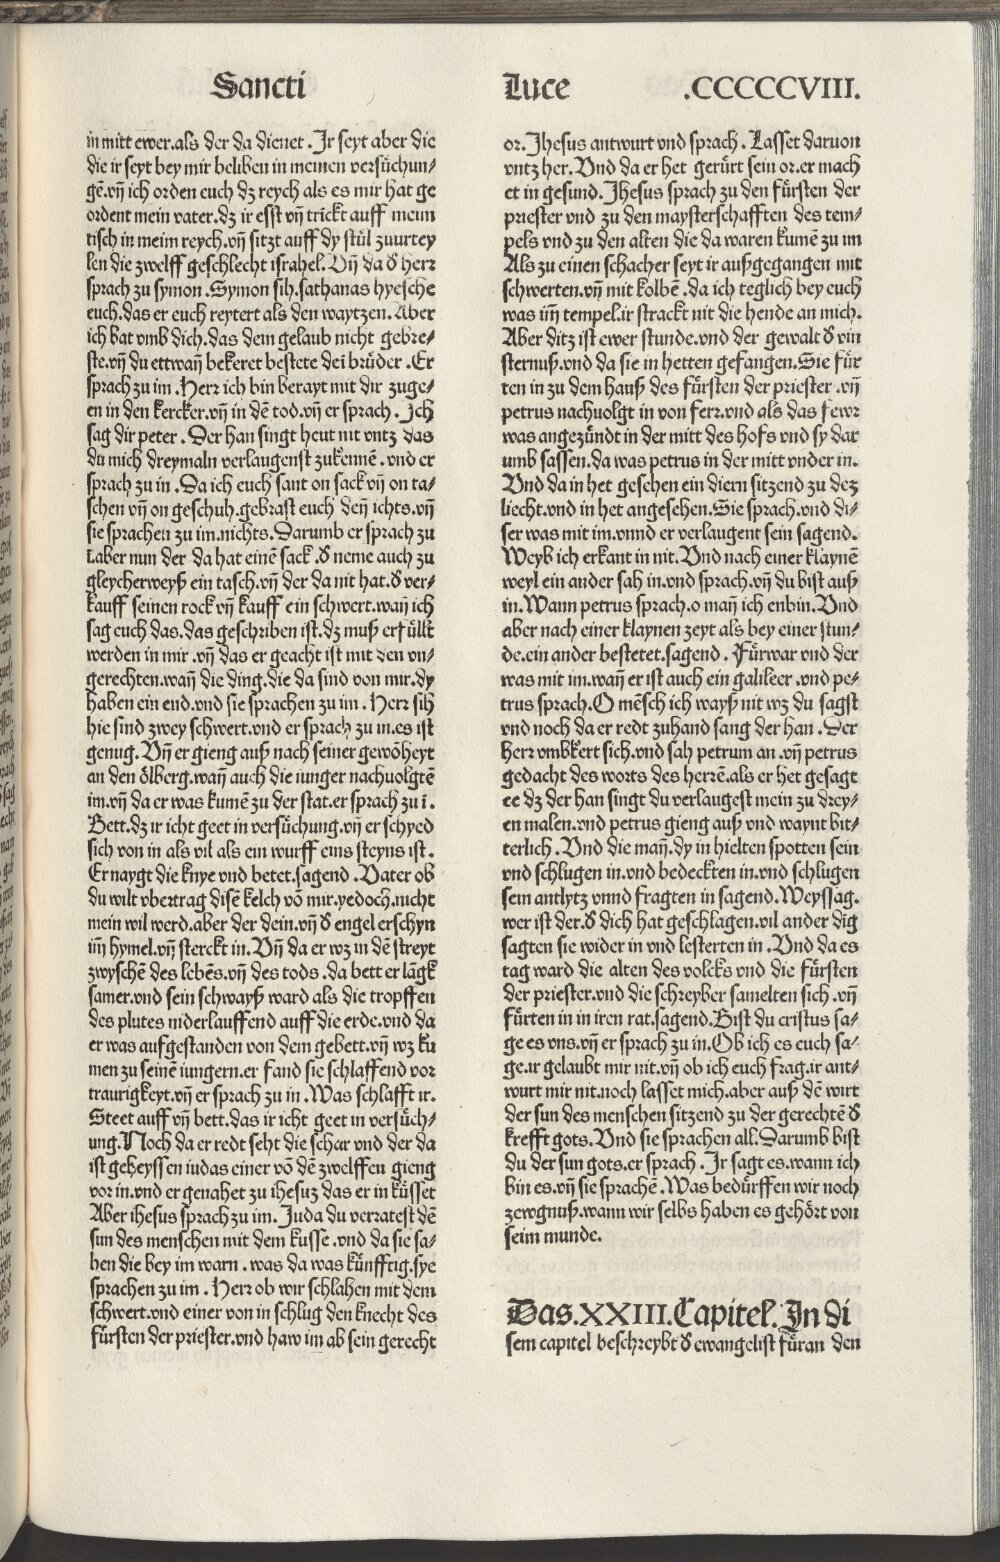 Sancti
Luce .CCCCCVIII.
in mitt ewer.als der da dienet. Jr seyt aber die
die ir seyt bey mir beliben in meinen versůchun⸗
gē.vn̄ ich orden euch dz reych als es mir hat ge
ordent mein vater.dz ir esst vn̄ trīckt auff meim
tisch in meim reych.vn̄ sitzt auff dy stůl zuurtey
len die zwelff geschlecht israhel. Vn̄ da d̕ herr
sprach zu symon. Symon sih.sathanas hyesche
euch.das er euch reytert als den waytzen. Aber
ich bat vmb dich.das dein gelaub nicht gebre⸗
ste.vn̄ du ettwan̄ bekeret bestete dei brůder. Er
sprach zu im. Herr ich bin berayt mit dir zuge⸗
en in den kercker.vn̄ in dē tod.vn̄ er sprach. Jch
sag dir peter. Der han singt heut nit vntz das
du mich dreymaln verlaugenst zukennē.vnd er
sprach zu in. Da ich euch sant on sack vn̄ on ta⸗
schen vn̄ on geschuh.gebrast euch den̄ ichts.vn̄
sie sprachen zu im.nichts. Darumb er sprach zu
i.aber nun der da hat einē sack.d̕ neme auch zu
gleycherweyß ein tasch.vn̄ der da nit hat.d̕ ver⸗
kauff seinen rock vn̄ kauff ein schwert.wan̄ ich
sag euch das.das geschriben ist.dz muß erfüllt
werden in mir.vn̄ das er geacht ist mit den vn⸗
gerechten.wan̄ die ding.die da sind von mir.dy
haben ein end.vnd sie sprachen zu im. Herr sih
hie sind zwey schwert.vnd er sprach zu in.es ist
genug. Vn̄ er gieng auß nach seiner gewōheyt
an den ölberg.wan̄ auch die iunger nachuolgtē
im.vn̄ da er was kumē zu der stat.er sprach zu ī.
Bett.dz ir icht geet in versůchung.vn̄ er schyed
sich von in als vil als ein wurff eins steyns ist.
Er naygt die knye vnd betet.sagend. Vater ob
du wilt vbertrag disē kelch vō mir.yedoch.nicht
mein wil werd.aber der dein.vn̄ d̕ engel erschyn
im̄ hymel.vn̄ sterckt in. Vn̄ da er wz in dē streyt
zwyschē des lebēs.vn̄ des tods.da bett er lāgk
samer.vnd sein schwayß ward als die tropffen
des plutes niderlauffend auff die erde.vnd da
er was aufgestanden von dem gebett.vn̄ wz ku
men zu seinē iungern.er fand sie schlaffend vor
traurigkeyt.vn̄ er sprach zu in. Was schlafft ir.
Steet auff vn̄ bett.das ir icht geet in versůch⸗
ung. Noch da er redt seht die schar vnd der da
ist geheyssen iudas einer vō dē zwelffen gieng
vor in.vnd er genahet zu ihesuz das er in küsset
Aber ihesus sprach zu im. Juda du verratest dē
sun des menschen mit dem kusse.vnd da sie sa⸗
hen die bey im warn.was da was künfftig.sye
sprachen zu im. Herr ob wir schlahen mit dem
schwert.vnd einer von in schlug den knecht des
fürsten der priester.vnd haw im ab sein gerecht
or. Jhesus antwurt vnd sprach. Lasset daruon
vntz her. Vnd da er het gerürt sein or.er mach
et in gesund. Jhesus sprach zu den fürsten der
priester vnd zu den maysterschafften des tem⸗
pels vnd zu den alten die da waren kumē zu im
Als zu einen schacher seyt ir außgegangen mit
schwerten.vn̄ mit kolbē.da ich teglich bey euch
was im̄ tempel.ir strackt nit die hende an mich.
Aber ditz ist ewer stunde.vnd der gewalt d̕ vin
sternuß.vnd da sie in hetten gefangen. Sie für
ten in zu dem hauß des fürsten der priester.vn̄
petrus nachuolgt in von ferr.vnd als das fewr
was angezündt in der mitt des hofs vnd sy dar
umb sassen.da was petrus in der mitt vnder in.
Vnd da in het gesehen ein diern sitzend zu dez
liecht.vnd in het angesehen. Sie sprach.vnd di⸗
ser was mit im.vnnd er verlaugent sein sagend.
Weyb ich erkant in nit. Vnd nach einer klaynē
weyl ein ander sah in.vnd sprach.vn̄ du bist auß
in. Wann petrus sprach.o man̄ ich enbin. Vnd
aber nach einer klaynen zeyt als bey einer stun⸗
de.ein ander bestetet.sagend. Fürwar vnd der
was mit im.wan̄ er ist auch ein galileer.vnd pe⸗
trus sprach. O mēsch ich wayß nit wz du sagst
vnd noch da er redt zuhand sang der han. Der
herr vmbkert sich.vnd sah petrum an.vn̄ petrus
gedacht des worts des herrē.als er het gesagt
ee dz der han singt du verlaugest mein zu drey⸗
en malen.vnd petrus gieng auß vnd waynt bit⸗
terlich. Vnd die man̄.dy in hielten spotten sein
vnd schlugen in.vnd bedeckten in.vnd schlugen
sein antlytz vnnd fragten in sagend. Weyssag.
wer ist der.d̕ dich hat geschlagen.vil ander dīg
sagten sie wider in vnd lesterten in. Vnd da es
tag ward die alten des volcks vnd die fürsten
der priester.vnd die schreyber samelten sich.vn̄
fürten in in iren rat.sagend. Bist du cristus sa⸗
ge es vns.vn̄ er sprach zu in. Ob ich es euch sa⸗
ge.ir gelaubt mir nit.vn̄ ob ich euch frag.ir ant⸗
wurt mir nit.noch lasset mich.aber auß dē wirt
der sun des menschen sitzend zu der gerechtē d̕
krefft gots. Vnd sie sprachen all. Darumb bist
du der sun gots.er sprach. Jr sagt es.wann ich
bin es.vn̄ sie sprachē. Was bedürffen wir noch
zewgnuß.wann wir selbs haben es gehört von
seim munde.
Das.XXIII.Capitel. Jn di
sem capitel beschreybt d̕ ewangelist füran den